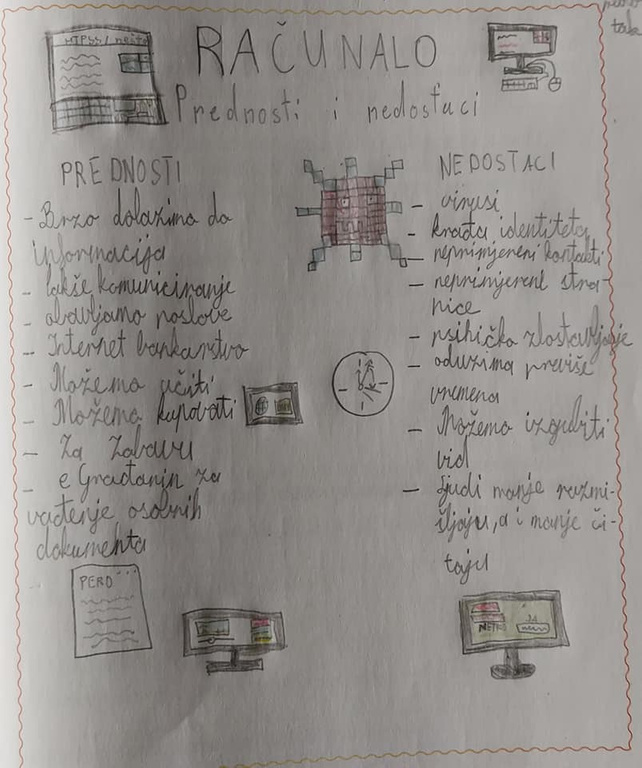 RAČUNALO
Prednosti i nedostaci
PREDNOSTI
- Brzo dolazimo do
informacija
- lakše komuniciranje
- obavljamo poslove
- Internet bankarstvo
- Možemo učiti
- Možemo kupovati
- Za Zabavu
- e Građanin za
vađenje osobnih
dokumenta
PERO
NEDOSTACI
- virusi
- krađa identiteta
- neprimjereni kontakti
- neprimjerene stra-
nice
- psihičko zlostavljanje
- oduzima previše
vremena
- Možemo izgubiti
vid
- ljudi manje razmi-
šljaju, a i manje či-
taju